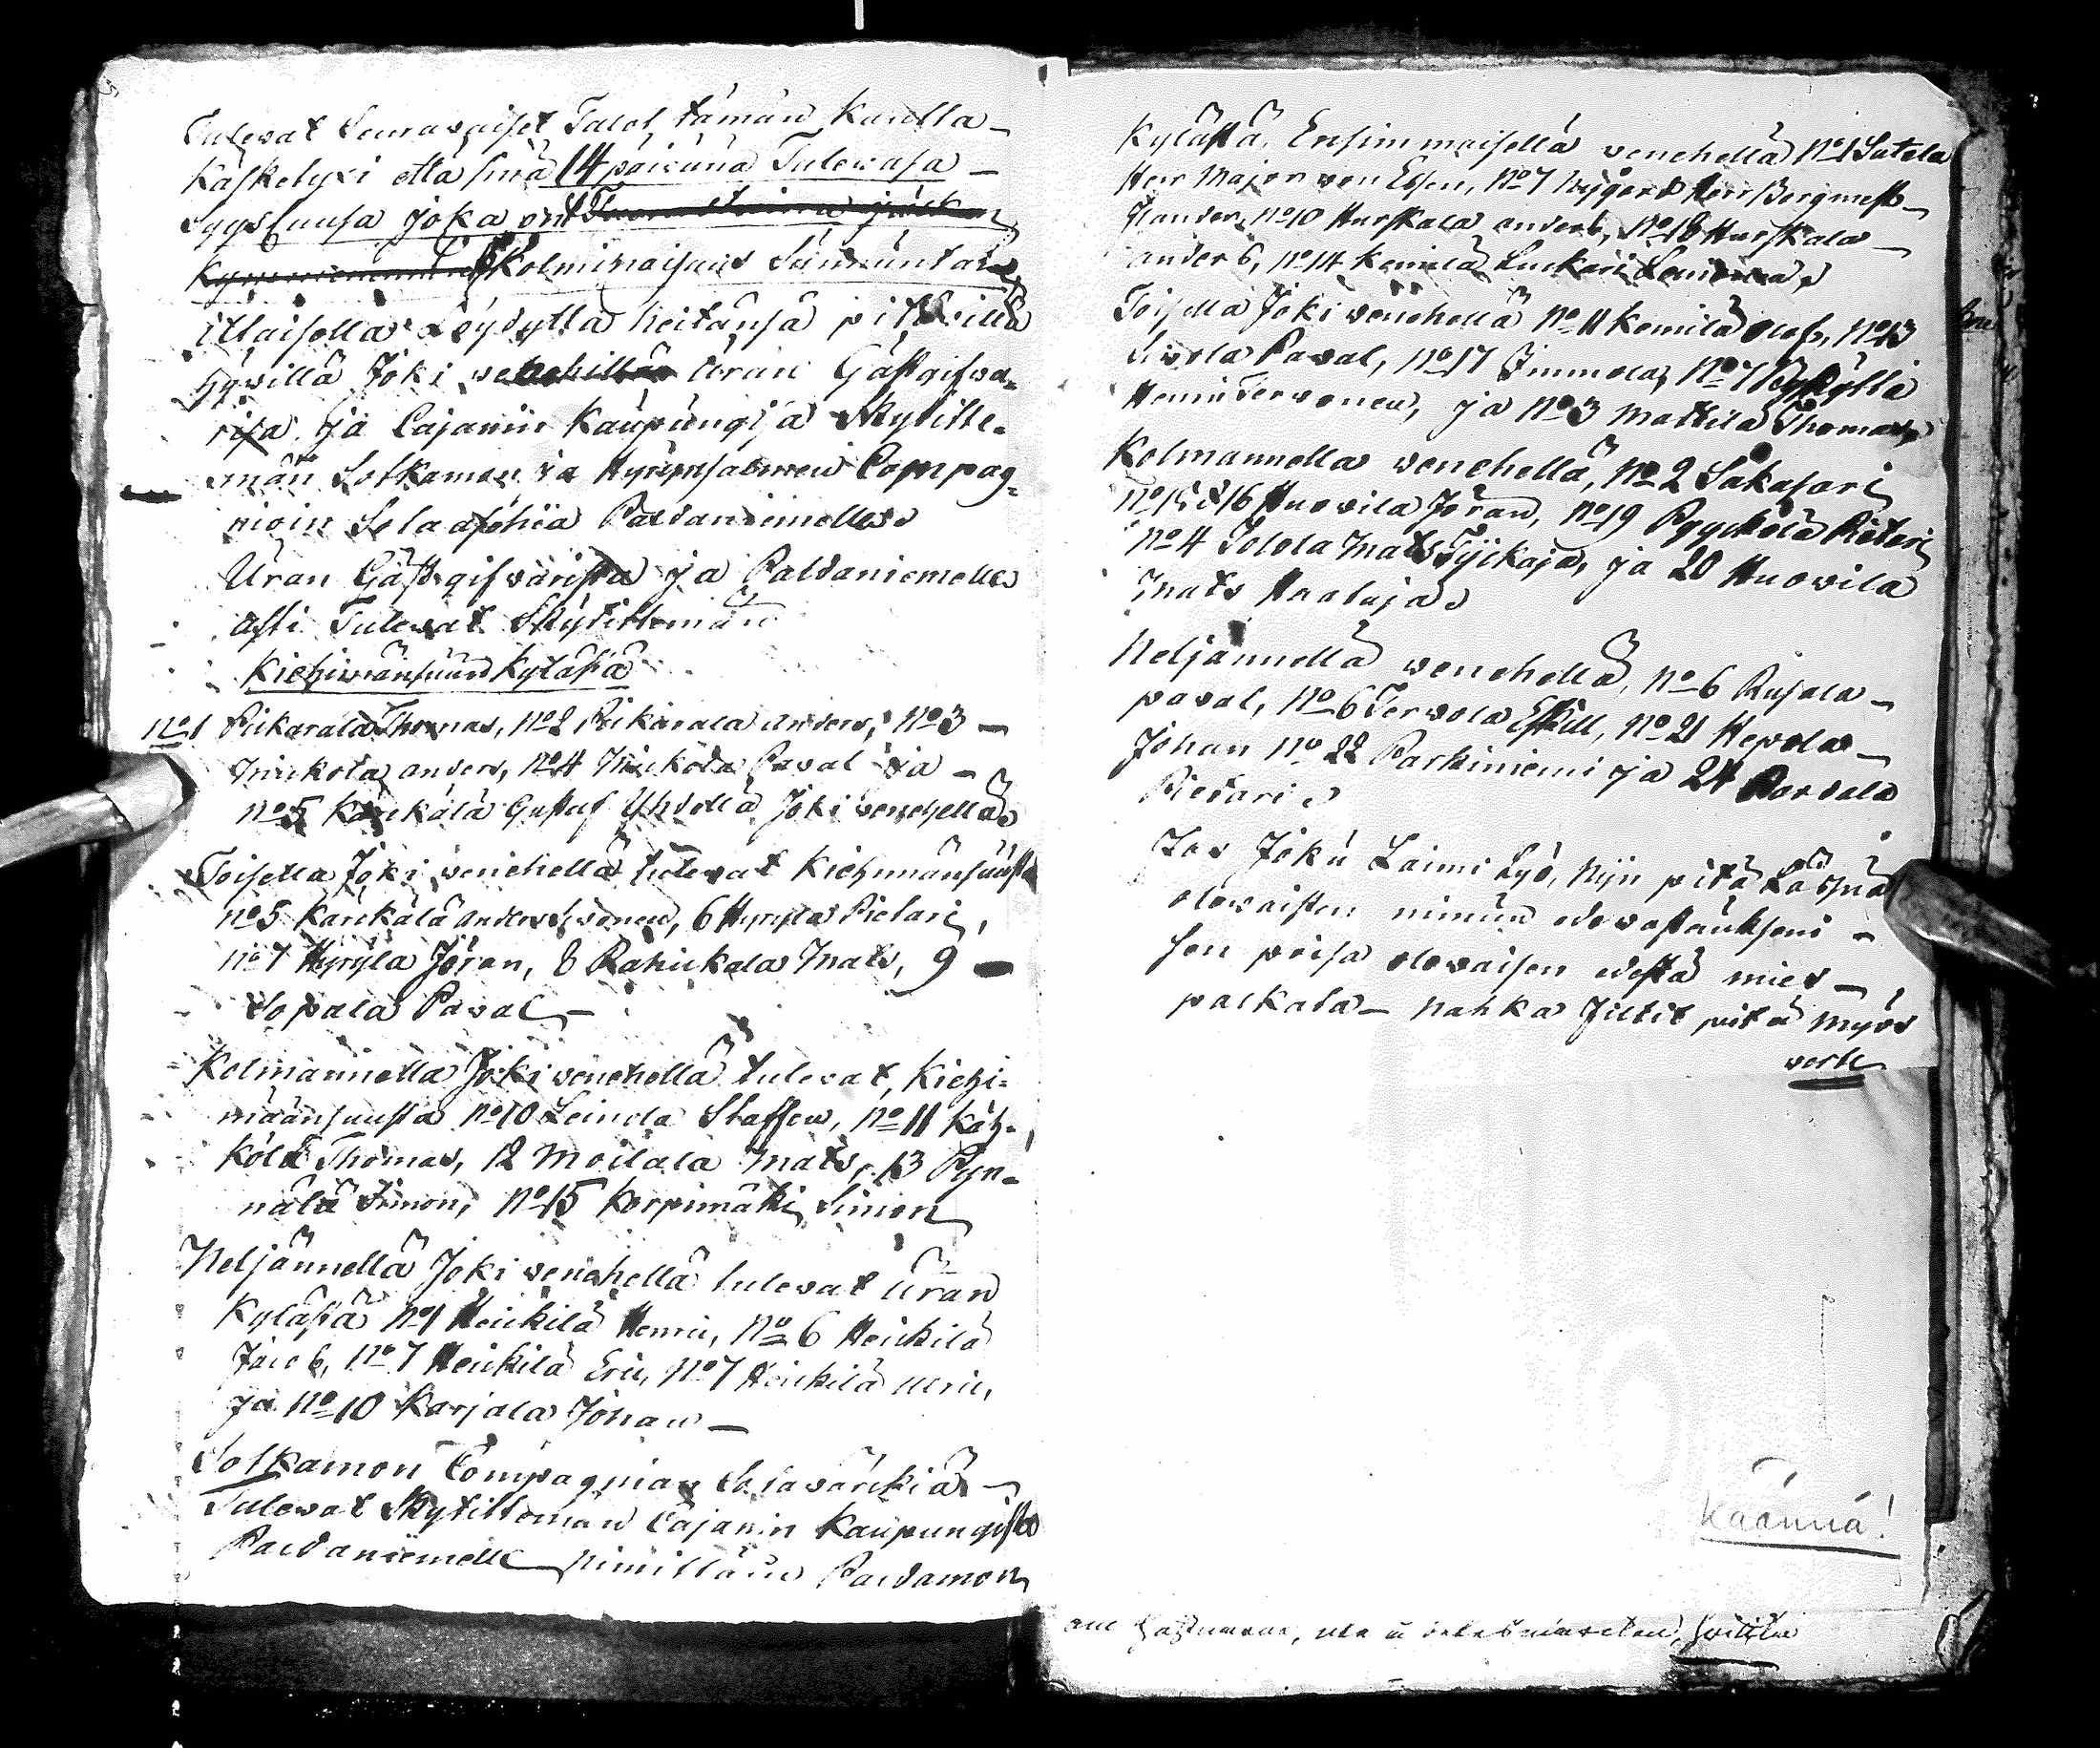 Tulevat Seuravaiset Talot tämän kautta
käsketyxi että sinä 14 päivänä Tulevasa
Syys Cuusa joka on
Kolminaisuus Sunnuntaina
iltaisella Löydyttä heitänsä pitkillä
hyvillä Joki venehillä Uran Gästgifva-
risa ja Cajanin Kaupungisa Kyditte-
män Sotkamon ja Hyrynsalmen Compag-
nioin Paldaniemelle
Uran Gästgifvarista ja Paldaniemelle
asti Tulevat Skytittemän
Kiehimänsuun kylästä
No 1 Pikarala Thomas, No 2 Pikarala Anders, No 3
anders, No 4 Paval ja
No 5 Karekälä Gustaf Yhdellä Joki venehellä
Toisella Joki venehellä tulevat Kiehimänsuusta
No 5 Karekälä anders Sivonen, 6 Hyryla Pietari,
No 7 Hyryla Jöran, 8 Rahickala Mats, 9
Sopala Paval
Kolmannella Joki venehellä tulevat, Kiehi-
määnsuusta No 10 Leinola Staffan, No 11 Käh-
kölä Thomas, 12 Moilala Mats, 13 Pyn-
nälä Simon, No 15 Korpimäki Simon
Neljännellä Joki venehellä tulevat Uran
Kylästä No 1 Heickilä Henric, No 6 Heickilä
Jacob, No 7 Heickilä Eric, No 7 Heickilä Ulric,
ja No 10 Karjala Johan
Sotkamon Compagnian
Tulevat Skytittemän Cajanin Kaupungista
Paldaniemelle nimittäin Paldamon
Kylästä, Ensimmaisellä venehellä No 1 Sutela
Herr Major von Essen, No 7 Nygård Herr Bergmest-
No 10 Hurskala anders, No 18 Hurskala
anders, No 14 Kemilä Luckari
Toisella Joki venehellä No 11 Kemilä Olof, No 13
Sivola Paval, No 17 Jimmola, No 7
Henric Tervonen, ja No 3 Mattila Thomas
Kolmannella venehellä, No 2 Sakasari
No 15 & 16 Huovila Jöran, No 19 Pyyckölä Pietari
No 4 Tolola Mats Tyikaja, ja 20 Huovila
Mats Haataja
Neljännellä venehellä, No 6 Rusala
paval, No 6 Tervola Eskill, No 21 Hepola
Johan No 22 Parkiniemi ja 24
Pietari
Jos Joku Laimi Lyö, Nijn pitä Läsnä
olevaisten minun edesvastaukseni
sen poisa olevaisen edestä mies
palkata nahka pitä myös
Käännä!